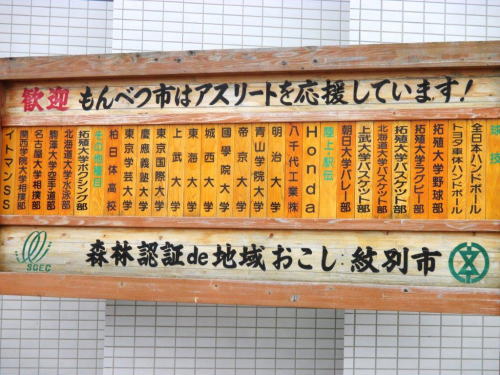 歓迎 もんべつ市はアスリートを応援しています!
球技
全日本ハンドボール
トヨタ車体ハンドボール
拓殖大学野球部
拓殖大学ラグビー部
拓殖大学バスケット部
北海道大学バスケット部
上武大学バスケット部
朝日大学バレー部
陸上・駅伝
Honda
八千代工業㈱
明治大学
青山学院大学
帝京大学
國學院大学
城西大学
東海大学
上武大学
東京国際大学
慶應義塾大学
東京学芸大学
柏日体高校
その他種目
拓殖大学ボクシング部
北海道大学水泳部
駒澤大学空手道部
名古屋大学相撲部
関西学院大学相撲部
イトマンSS
SGEC
森林認証de地域おこし:紋別市